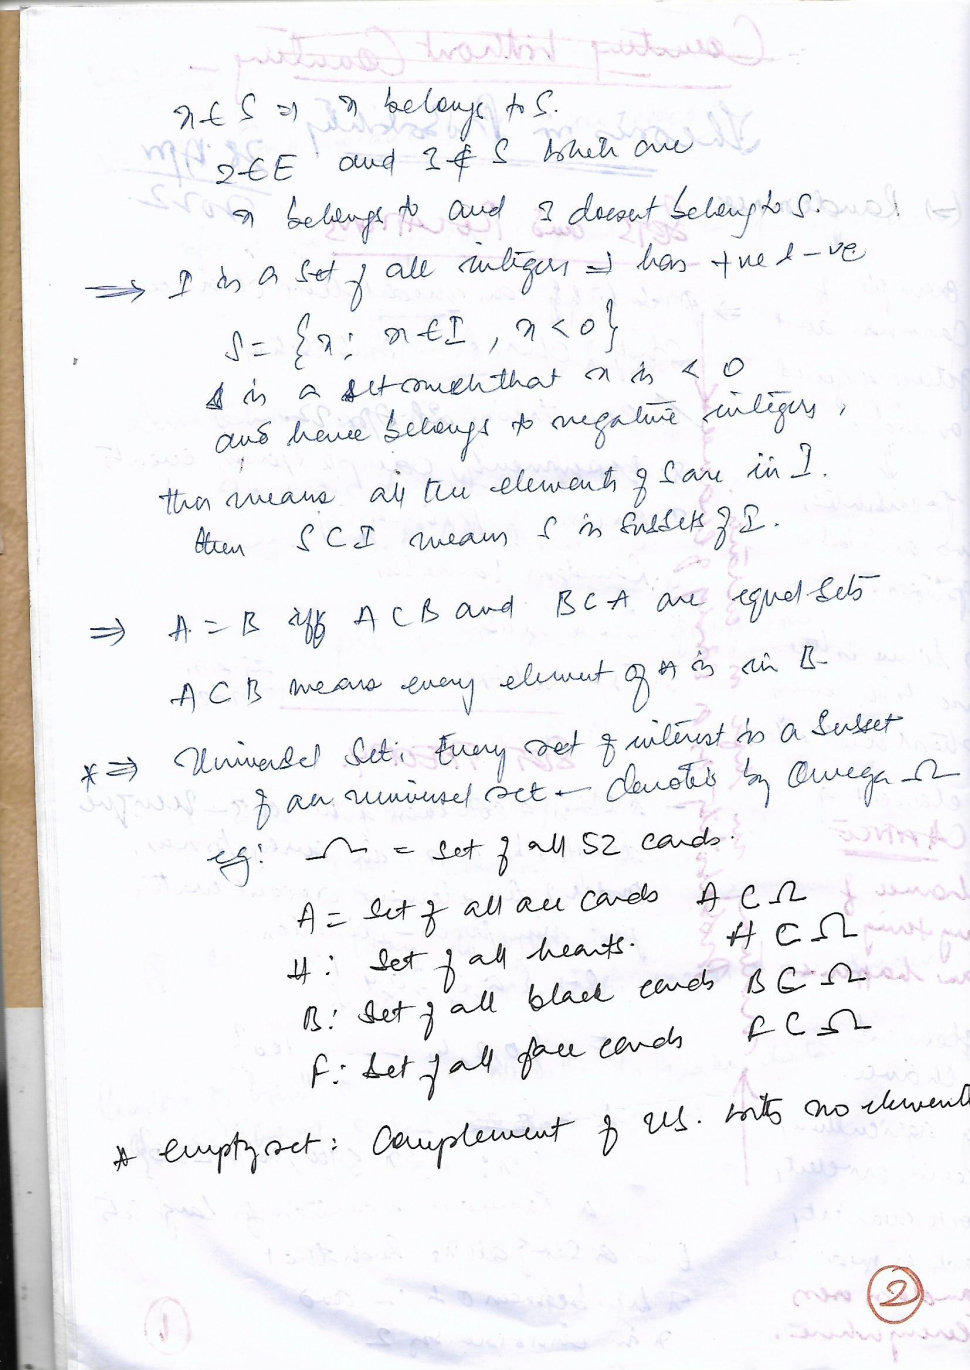 x ∈ S ⇒ x belongs to S.
2 ∈ E and 3 ∉ S which are
x belongs to and 3 doesnt belong to S.
⇒ I is a set of all integers ⇒ has +ve & -ve
S = {x: x ∈ I, x < 0}
S is a set such that x is < 0
and hence belongs to negative integers,
this means all the elements of S are in I.
then S ⊂ I means S is subset of I.
⇒ A = B iff A ⊂ B and B ⊂ A are equal sets
A ⊂ B means every element of A is in B
* ⇒ Universal Set: Every set of interest is a subset
of an universal set - denoted by Omega Ω
eg: Ω = set of all 52 cards.
A = set of all ace cards A ⊂ Ω
H: set of all hearts. H ⊂ Ω
B: set of all black cards B ⊂ Ω
F: set of all face cards F ⊂ Ω
* empty set: complement of US. with no elements
2